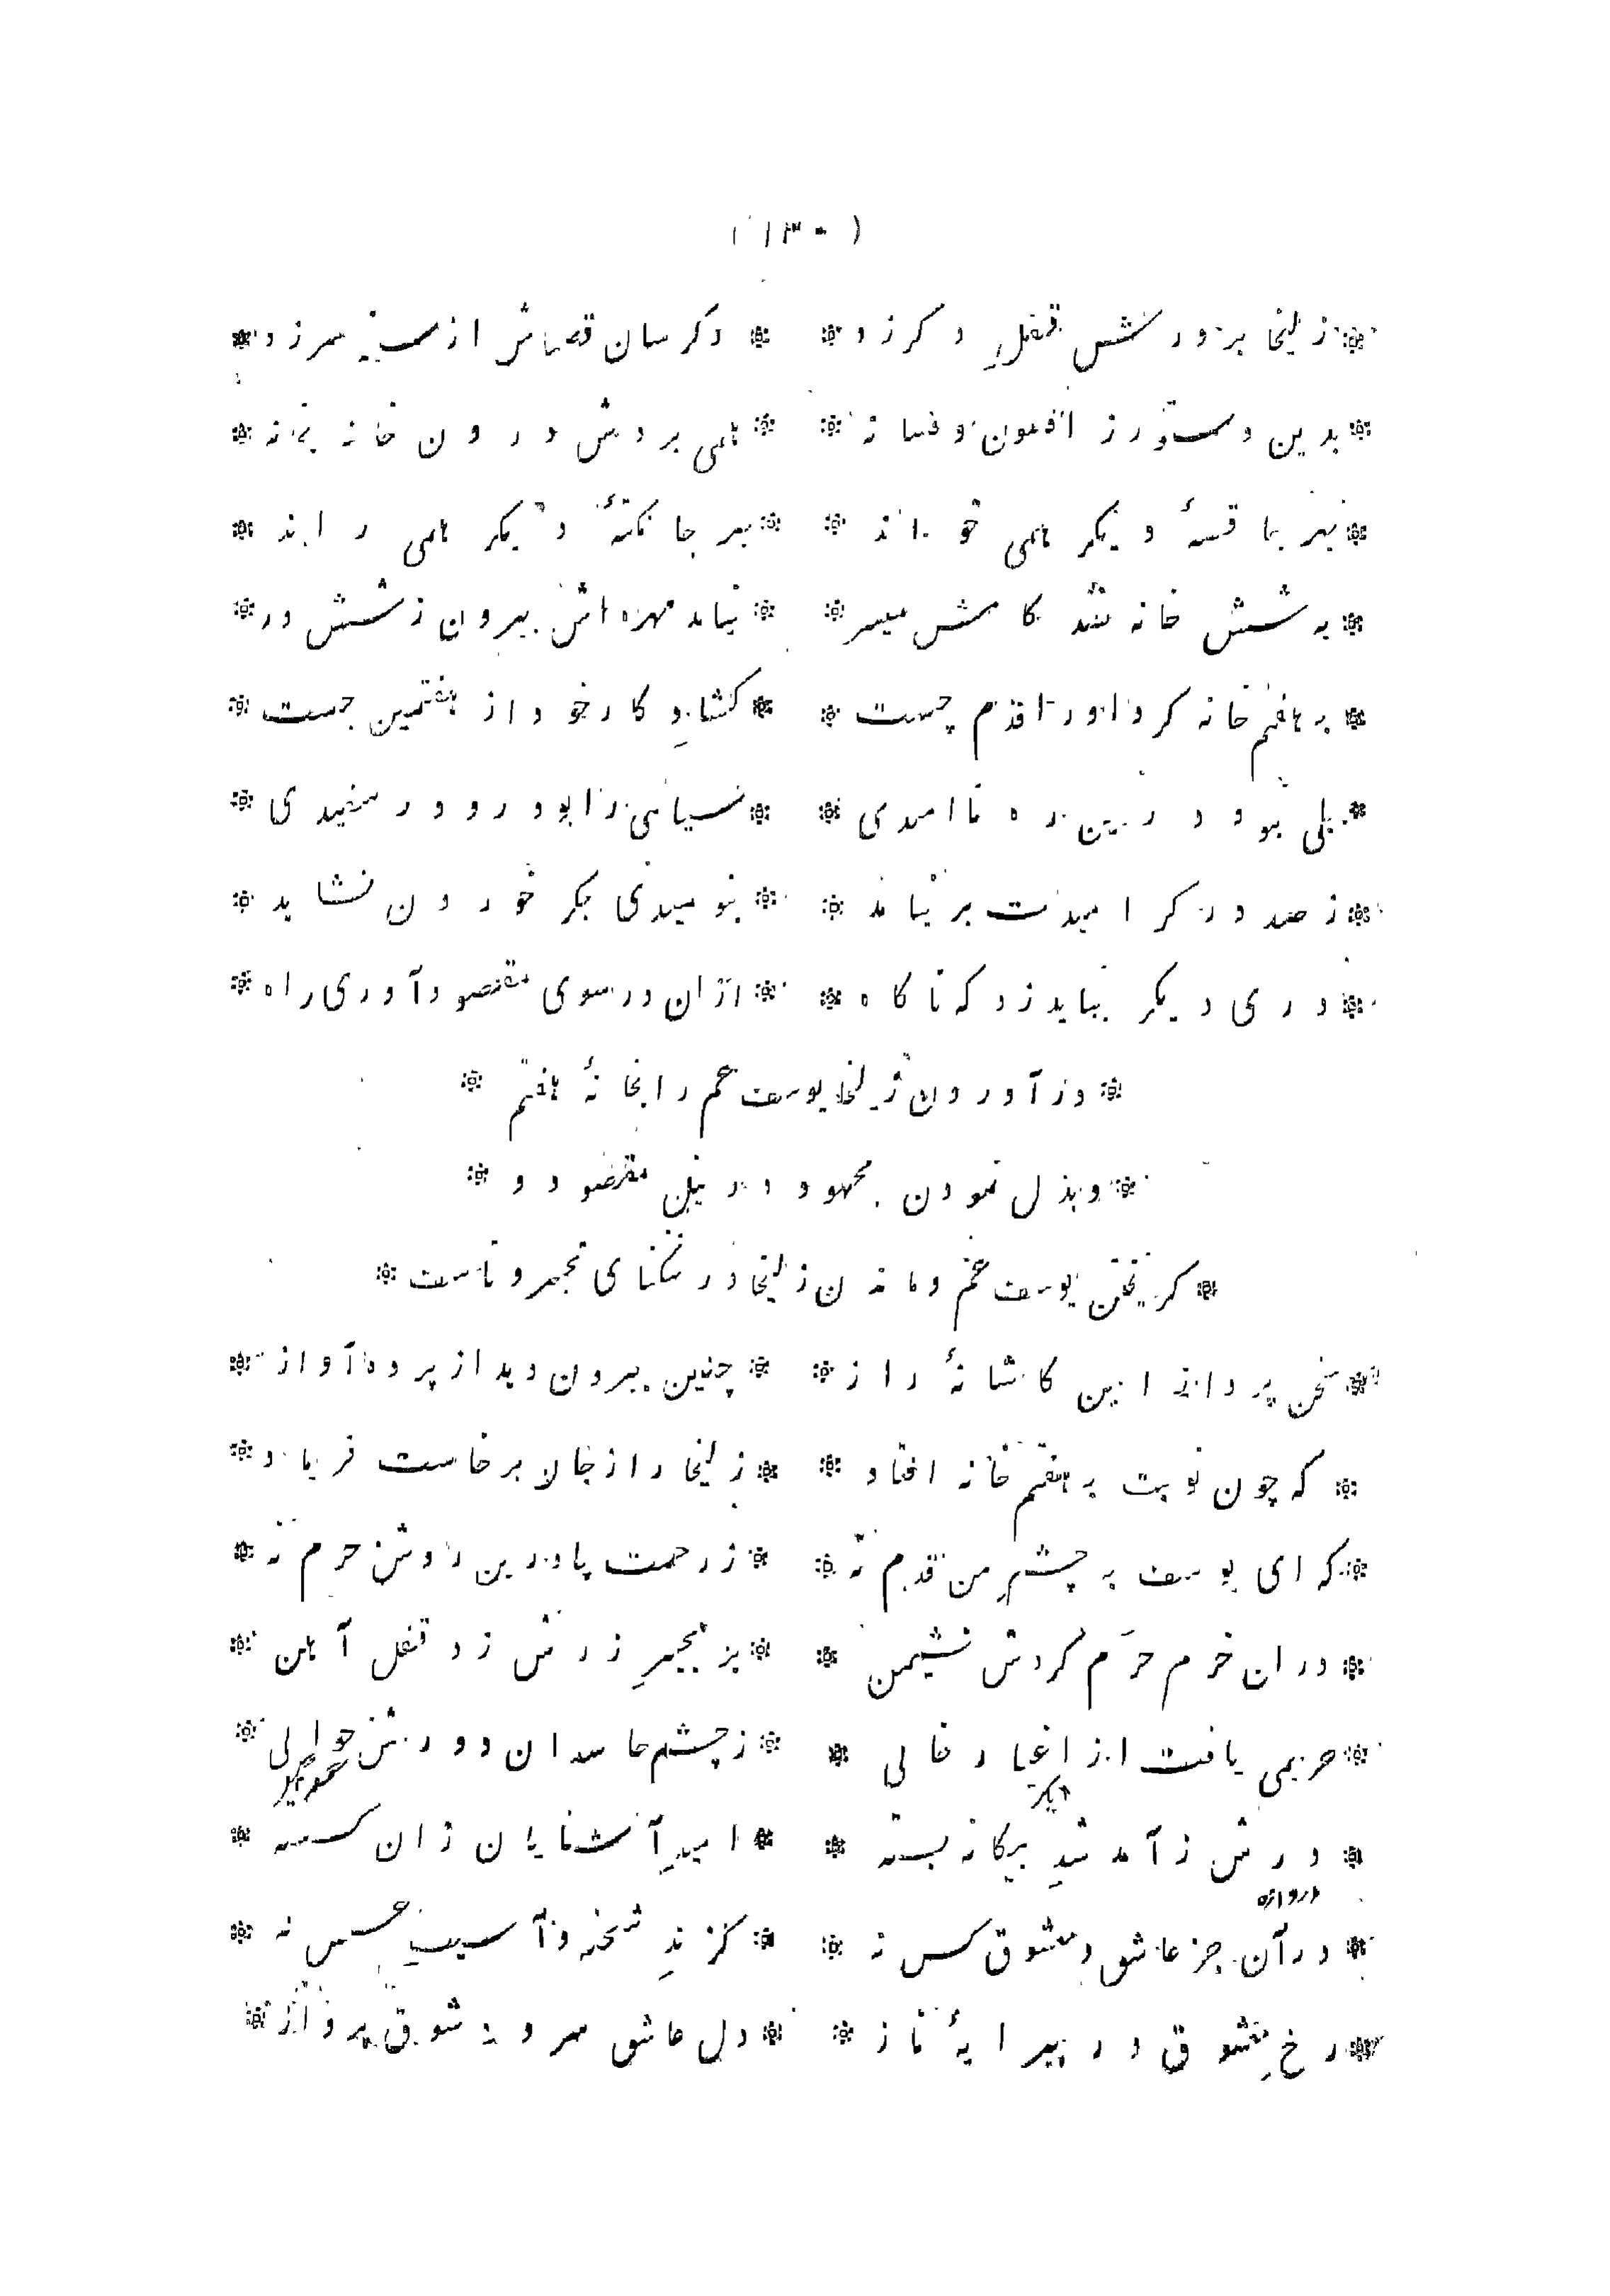 ( ۱۳۰ )
* زلیخا بر درش قفلِ دکر زد * * دکر سان قصه‌اش از سینه سر زد *
* بدین دستور ز افسون و فسانه * * همی بردش درون خانه بخانه *
* بهر جا قصهٔ دیکر همی خواند * * بهر جا نکتهٔ دیکر همی راند *
* به شش خانه نشد کامش میسر * * نیامد مهره‌اش بیرون ز ششدر *
* به هفتم خانه کرد او را قدم چست * * کشادِ کار خود از هفتمین جست *
* بلی نبود درین ره ناامیدی * * سیاهی را بود رو در سفیدی *
* ز صد در کر امیدت بر نیاید * * بنومیدی جکر خوردن نشاید *
* دری دیکر بباید زد که ناکاه * * ازان در سوی مقصود آوری راه *
* در آوردن زلیخا یوسف عم را بخانهٔ هفتم *
* و بذل نمودن مجهود در نیل مقصود و *
* کریختن یوسف عم و ماندن زلیخا در تنکنای تحیر و تاسف *
* سخن پرداز این کاشانهٔ راز * * چنین بیرون دید از پرده آواز *
* که چون نوبت به هفتم خانه افتاد * * زلیخا را ز جان برخاست فریاد *
* که ای یوسف به چشمِ من قدم نه * * ز رحمت پا درین روشن حرم نه *
* دران خرم حرم کردش نشیمن * * بزنجیرِ زرش زد قفل آهن *
* حریمی یافت از اغیار خالی * * ز چشم حاسدان دورش حوالی *
* درش ز آمد شدِ بیکانه بسته * * امیدِ آشنایان زان کسسته *
دروازه
* در آن جز عاشق و معشوق کس نه * * کزندِ شحنه و آسیبِ عسس نه *
* رخِ معشوق در پیرایهٔ ناز * * دل عاشق سرودِ شوق پرداز *